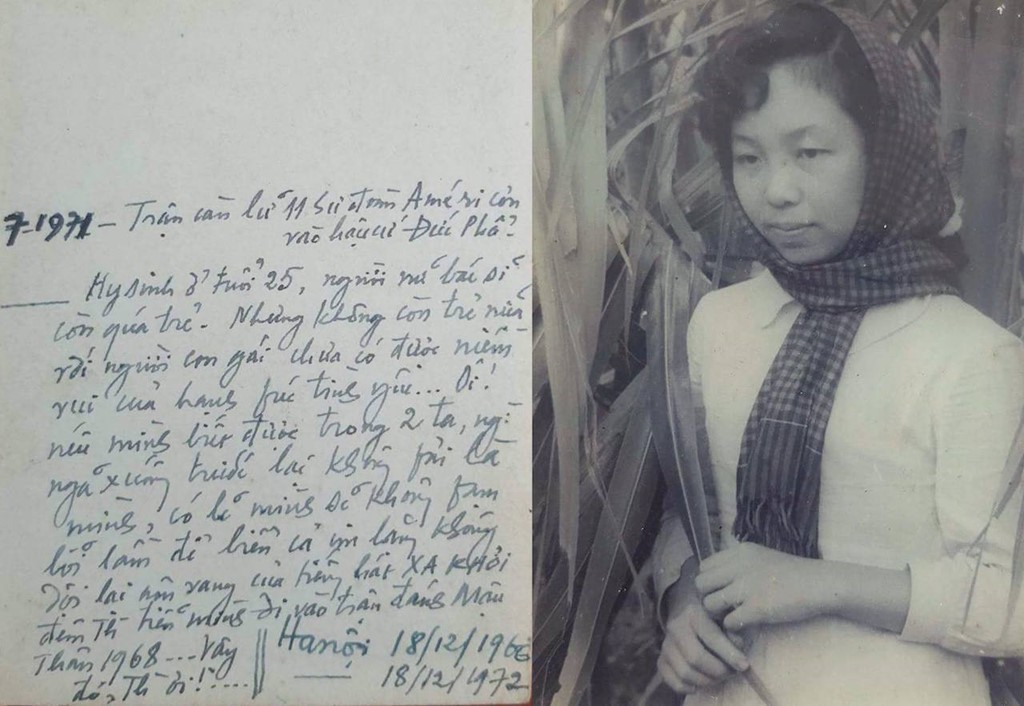 7-1971 - Trận càn lữ 11 Sư đoàn Améri còn
vào hậu cứ Đức Phổ.
Hy sinh ở tuổi 25, người nữ bác sĩ
còn quá trẻ. Nhưng không còn trẻ nữa
rồi người con gái chưa có được niềm
vui của hạnh fúc tình yêu... Ôi!
nếu mình biết được trong 2 ta, ng:
ngã xuống trước lại không fải là
mình, có lẽ mình sẽ không fạm
lỗi lầm để biển cả im lặng không
dội lại âm vang của tiếng hát XA KHƠI
đêm Th tiễn mình đi vào trận đánh Mậu
Thân 1968.... Vậy
đó, Th ơi!....
Hanội 18/12/1966
18/12/1972